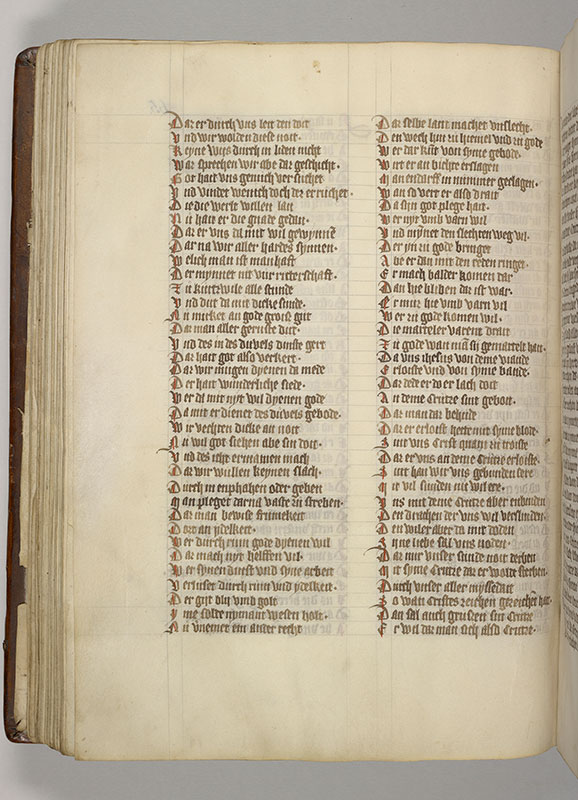 Dar er durch vns leit den doit
Vnd wir wolden diese noit
Keyne wijs durch in liden nicht
War sprechen wir abe dar geschicht.
Gor hait vns gemich versuchet
Vnd vindet wenich doch dz er ruchet.
Die die werlt willen lan
Nu hait er die gnade gedan.
Dar er vns da mit wil gewynnē
Dar na wir aller hardes synnen.
Welich man ist manhaft
Der mynnet nit wir ritterschaft.
Zu kurtzwile alle stunde
Vnd duit da mit dicke sunde.
Nu mirket an gode groeß gut
Dar man aller gernste duit.
Vnd des in des duvels dinste gert
Dar hait got also verkert.
Dar wir mugen dyenen da mede
Der hait wunderliche siede.
Wer da mit nyt wil dyenen gode
Da mit er dienet des duvels gebode.
Wir vechten dicke an noit
Nu wil got siehen abe sin doit.
Vnd des icht ermanen mach
Dar wir wullen keynen slach.
Durch in enphahen oder geben
Man pleget darna vaste zu streben.
Dar man bewise frumekeit
Dort an ydelkeit.
Wer durch rum gode dyenen wil
Dar mach nyt helffen vil.
Wer synen dinst vnd syne arbeit
Verluset durch rum vnd ydelkeit.
Der gijt blij vmb golt
Yme solde nyman wesen holt.
Nu vneme ein ander recht
Dar selbe lant machet vnslecht.
Den wech hin zu hiemel vnd zu gode
Wer dar kut von syme gebode.
Wirt er an bichte erslagen
Man endarff in nummer geclagen.
Wan so vert er also drait
Da sin got plege hait.
Wer nyt vmb varn wil
Vnd mynet den slechten weg vil.
Der yn zu gode bringet
Abe er dan mit den reden ringet.
Er mach balder komen dar
Dan hie bliben dat ist war.
Er muz hie vmb varn vil
Wer zu gode komen wil.
Die marteler varent drait
Zu gode wan mā sij gemartelt hait.
Da vns ihesus von deme viande
Erloiste vnd von syme bande.
Dar dede er do er lach doit
An deme Crutze sint geboit.
Dar man dar behude
Dar er erloist hette mit syme blode.
Mit vns Crist quam zu troiste
Dar er vns an deme Crutze erloiste.
Mit han wir vns gebunden sere
Mit vil sunden nu wil ere.
Vns mit deme Crutze aber enbinden
Den duchen der vns wil verslinden.
Den wil er aber da mit doden
Syne liebe sal vns noden.
Dar mir vnser sunde noit derben
Mit syme Crutze dar er wolde sterben.
Durch vnser aller myssedait
So wan Cristes zeichen gezeichet hait.
Dan sal auch gruszen sin Crutze
Er wil dar man sich also Crutze.